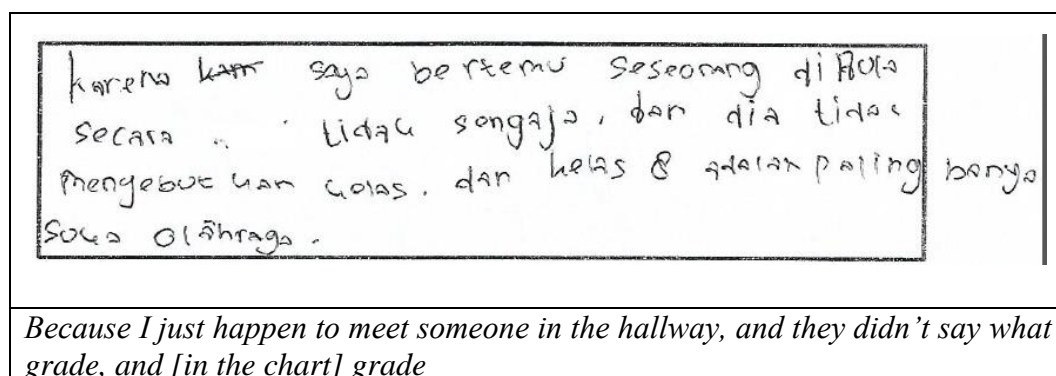 karena kam saya bertemu seseorang di Aula
secara tidak sengaja, dan dia tidak
mengebutkan kelas, dan kelas 8 adalah paling banya
suka olahraga.
Because I just happen to meet someone in the hallway, and they didn’t say what
grade, and [in the chart] grade